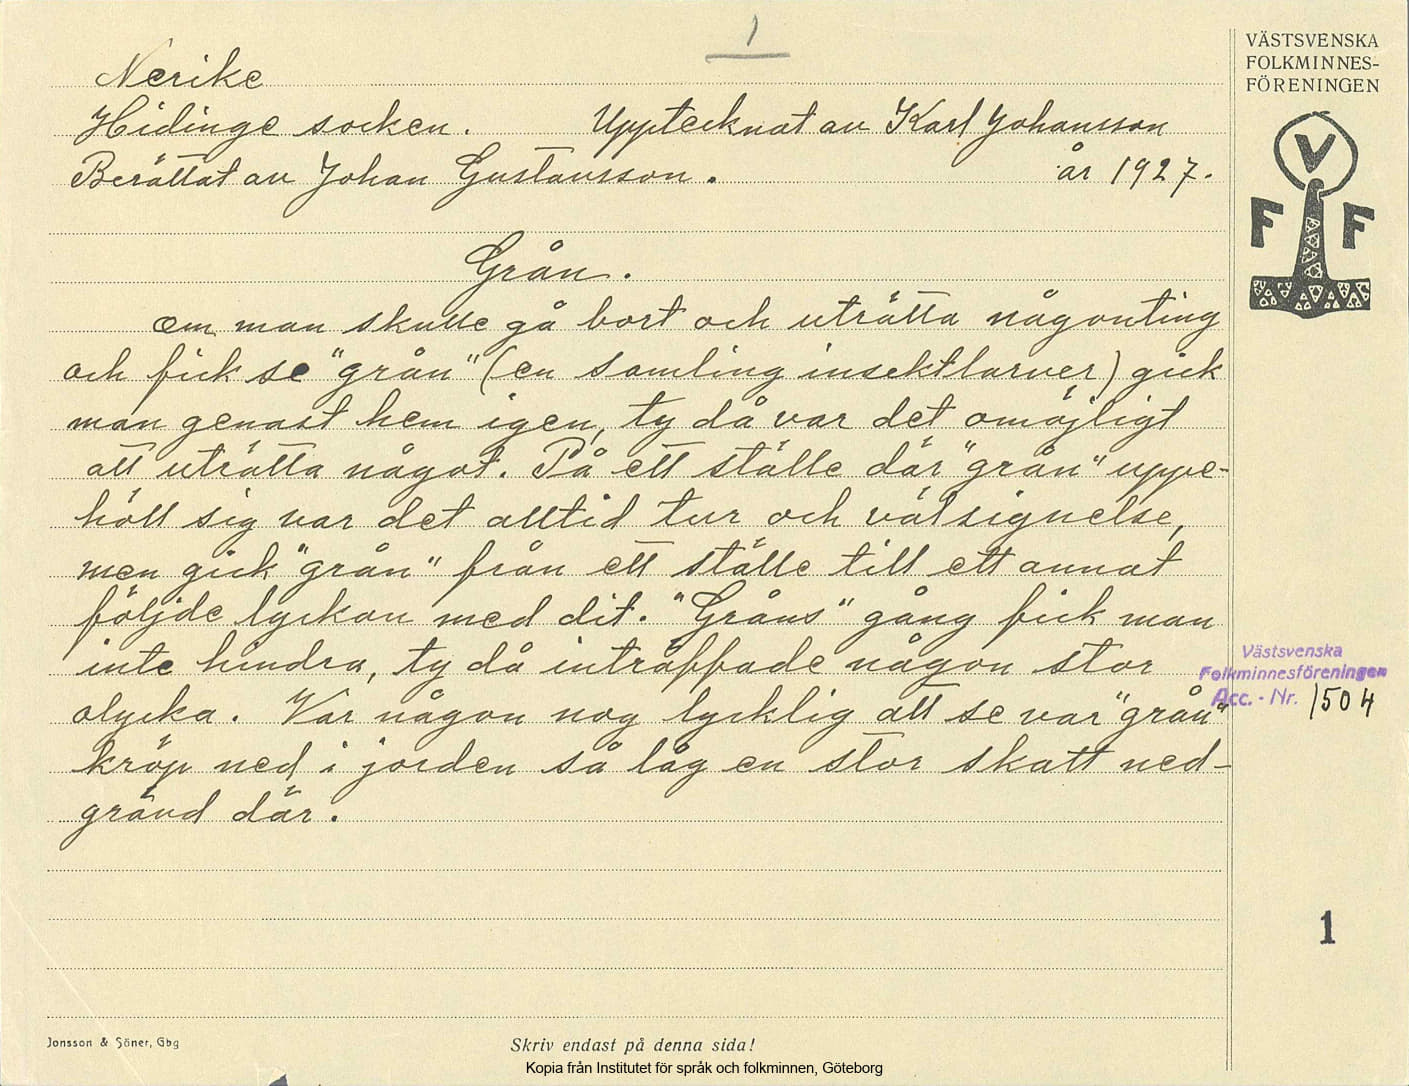 1
VÄSTSVENSKA
FOLKMINNES-
FÖRENINGEN
V
F F
Nerike
Hidinge socken. Upptecknat av Karl Johansson
Berättat av Johan Gustavsson. år 1927.
Grån.
om man skulle gå bort och uträtta någonting
och fick se "grån" (en samling insektlarver) gick
man genast hem igen, ty då var det omöjligt
att uträtta något. På ett ställe där "grån" uppe-
höll sig var det alltid tur och välsignelse,
men gick "grån" från ett ställe till ett annat
följde lyckan med dit. "Gråns" gång fick man
inte hindra, ty då inträffade någon stor
olycka. Var någon nog lycklig att se var "grån"
kröp ned i jorden så låg en stor skatt ned-
grävd där.
Västsvenska
Folkminnesföreningen
Acc. - Nr. 1504
1
Jonsson & Söner, Gbg
Skriv endast på denna sida!
Kopia från Institutet för språk och folkminnen, Göteborg